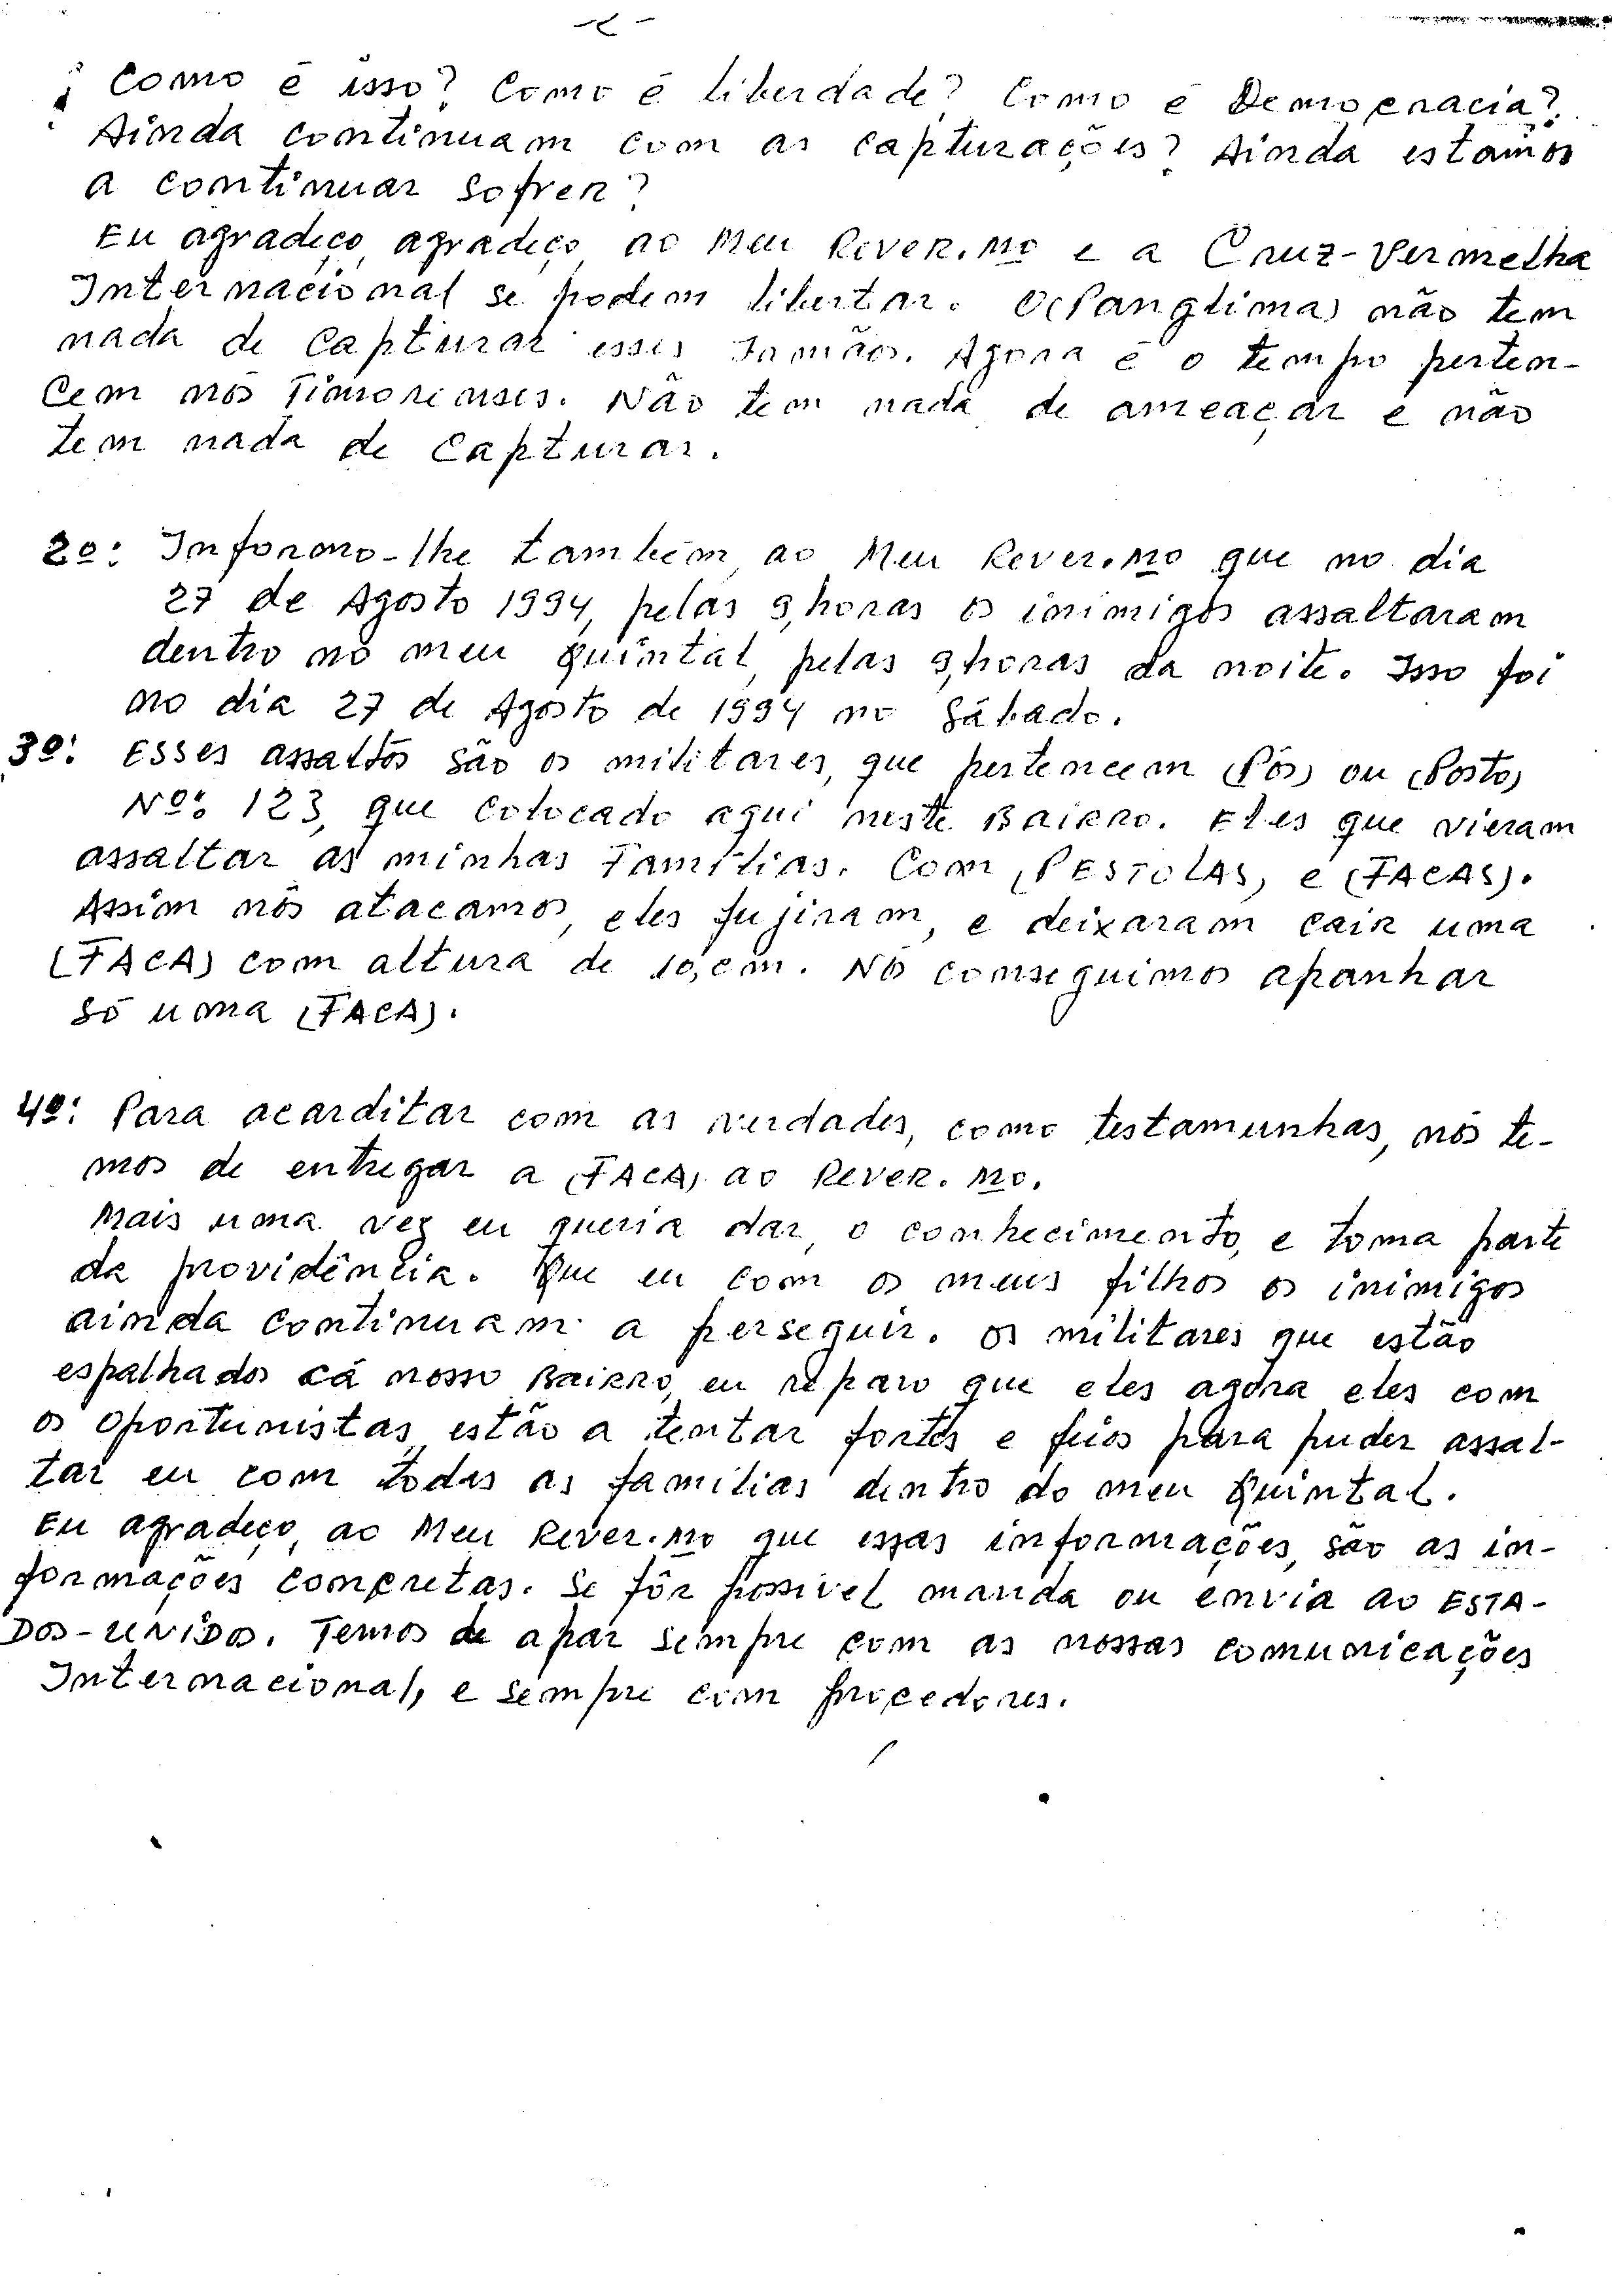 -2-
¿ Como é isso? Como é liberdade? Como é Democracia?
Ainda continuam com as capturações? Ainda estamos
a continuar sofrer?
Eu agradeço, agradeço, ao Meu Rever.mo e a Cruz-Vermelha
Internacional se podem libertar. O (Panglima) não tem
nada de Capturar esses Irmãos. Agora é o tempo perten-
cem nós Timorienses. Não tem nada de ameaçar e não
tem nada de Capturar.
2º: Informo-lhe também, ao Meu Rever.mo que no dia
27 de Agosto 1994, pelas 9,horas os inimigos assaltaram
dentro no meu quintal, pelas 9,horas da noite. Isso foi
no dia 27 de Agosto de 1994 no Sábado.
3º: Esses assaltos são os militares, que pertencem (Pós) ou (Posto)
Nº: 123, que colocado aqui neste Bairro. Eles que vieram
assaltar as minhas Famílias. Com (PESTOLAS) e (FACAS).
Assim nós atacamos, eles fujiram, e deixaram cair uma
(FACA) com altura de 10,cm. Nós conseguimos apanhar
só uma (FACA).
4º: Para acarditar com as verdades, como testamunhas, nós te-
mos de entregar a (FACA) ao Rever.mo.
Mais uma vez eu queria dar, o conhecimento, e toma parte
da providência. Que eu com os meus filhos os inimigos
ainda continuam a perseguir. Os militares que estão
espalhados cá nosso Bairro, eu réparo que eles agora eles com
os oportunistas, estão a tentar fortes e feios para puder assal-
tar eu com todas as famílias dentro do meu Quintal.
Eu agradeço, ao Meu Rever.mo que essas informações, são as in-
formações concretas. Se fôr possivel manda ou envia ao ESTA-
DOS-UNIDOS. Temos de apar sempre com as nossas comunicações
Internacional, e sempre com procedores.